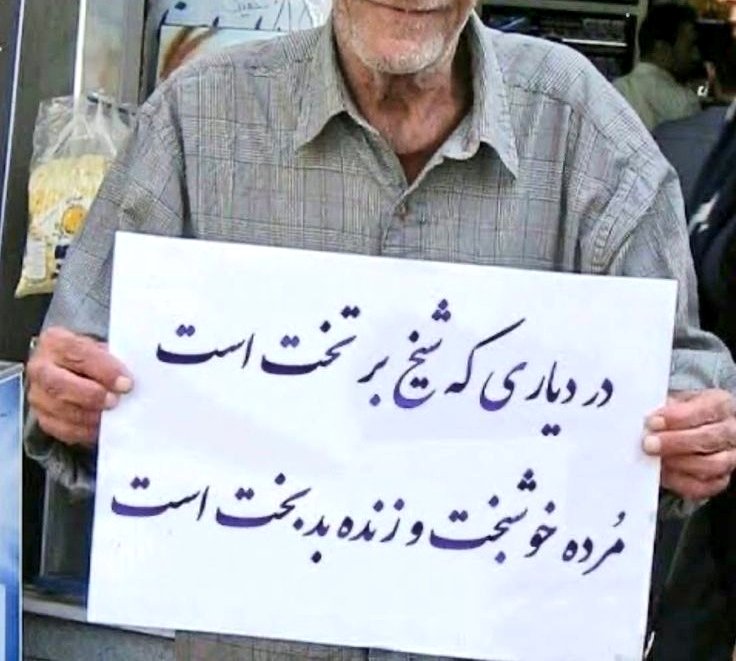 در دیاری که شیخ بر تخت است
مُرده خوشبخت و زنده بدبخت است